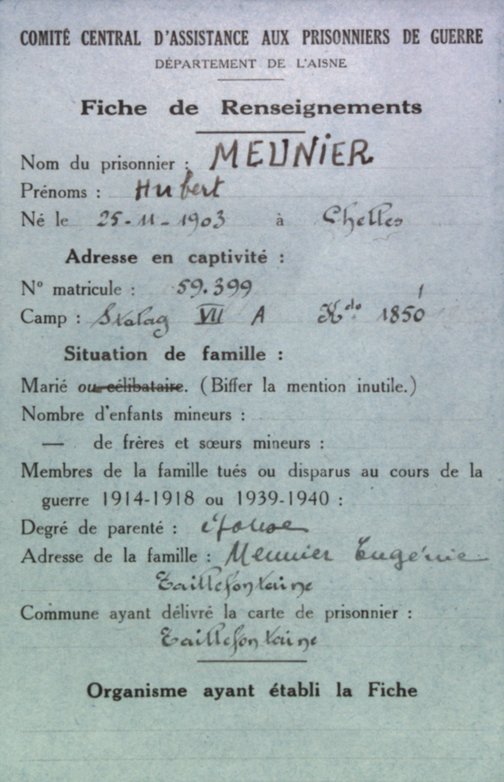 COMITÉ CENTRAL D'ASSISTANCE AUX PRISONNIERS DE GUERRE
DÉPARTEMENT DE L'AISNE
Fiche de Renseignements
Nom du prisonnier : MEUNIER
Prénoms : Hubert
Né le 25-11-1903 à Chelles
Adresse en captivité :
N° matricule : 59.399
Camp : Stalag VII A Kdo 1850
Situation de famille :
Marié ou célibataire. (Biffer la mention inutile.)
Nombre d'enfants mineurs :
— de frères et sœurs mineurs :
Membres de la famille tués ou disparus au cours de la
guerre 1914-1918 ou 1939-1940 :
Degré de parenté : épouse
Adresse de la famille : Meunier Eugénie
Taillefontaine
Commune ayant délivré la carte de prisonnier :
Taillefontaine
Organisme ayant établi la Fiche